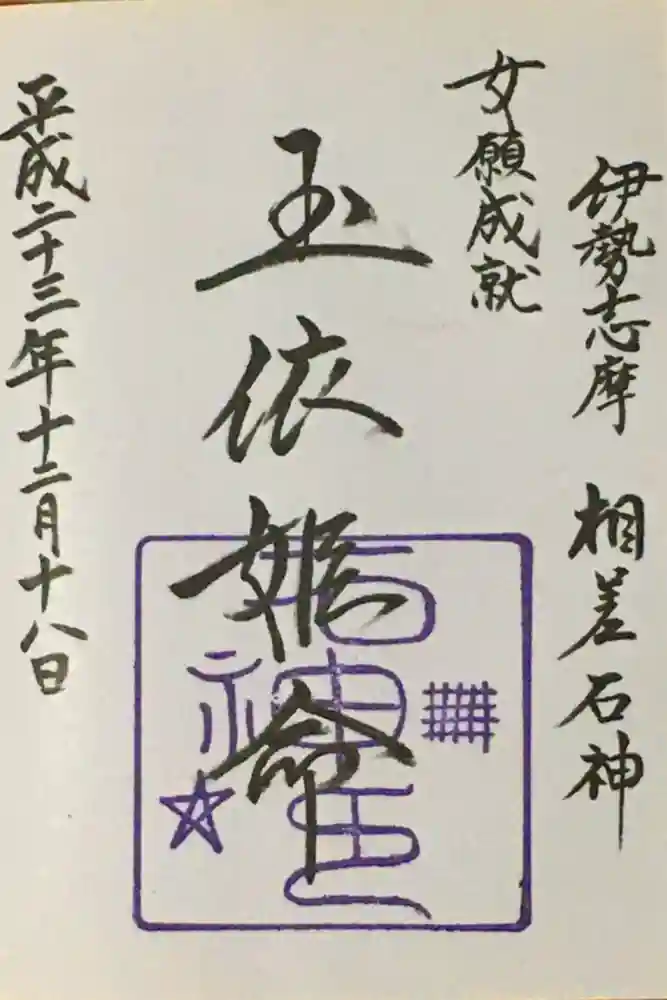 伊勢志摩 相差石神
女願成就
玉依姫命
平成二十三年十二月十八日
石神